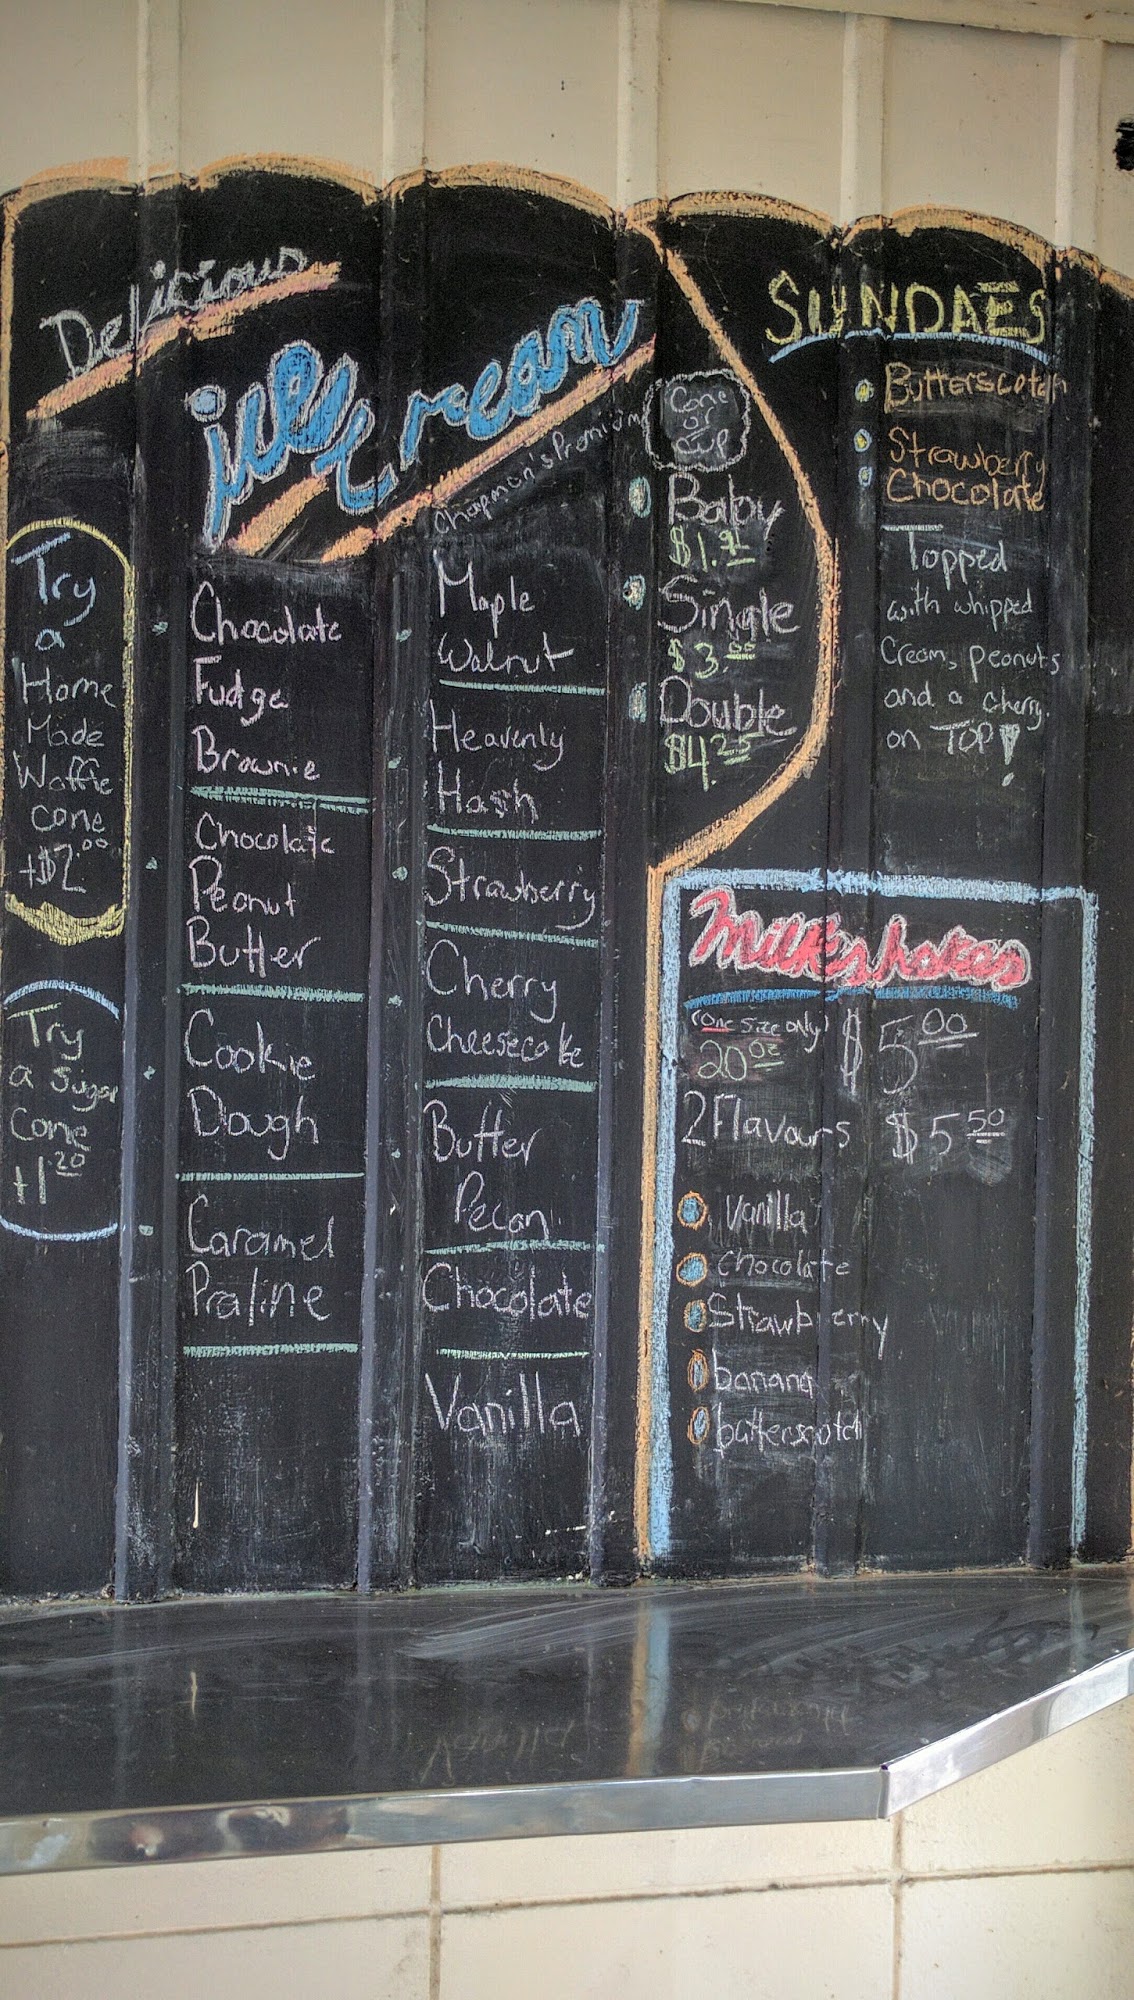 Delicious
ice cream
Chapman's Premium
Try
a
Home
Made
Waffle
cone
+$2.00
Try
a sugar
Cone
+1.20
Chocolate
Fudge
Brownie
Chocolate
Peanut
Butter
Cookie
Dough
Caramel
Praline
Maple
Walnut
Heavenly
Hash
Strawberry
Cherry
Cheesecake
Butter
Pecan
Chocolate
Vanilla
Cone
or
Cup
Baby
Single
$3.00
Double
$4.25
SUNDAES
Butterscotch
Strawberry
Chocolate
Topped
with whipped
Cream, peanuts
and a cherry
on TOP!
Milkshakes
(one size only) $5.00
20oz
2 Flavours $5.50
vanilla
chocolate
Strawberry
banana
butterscotch